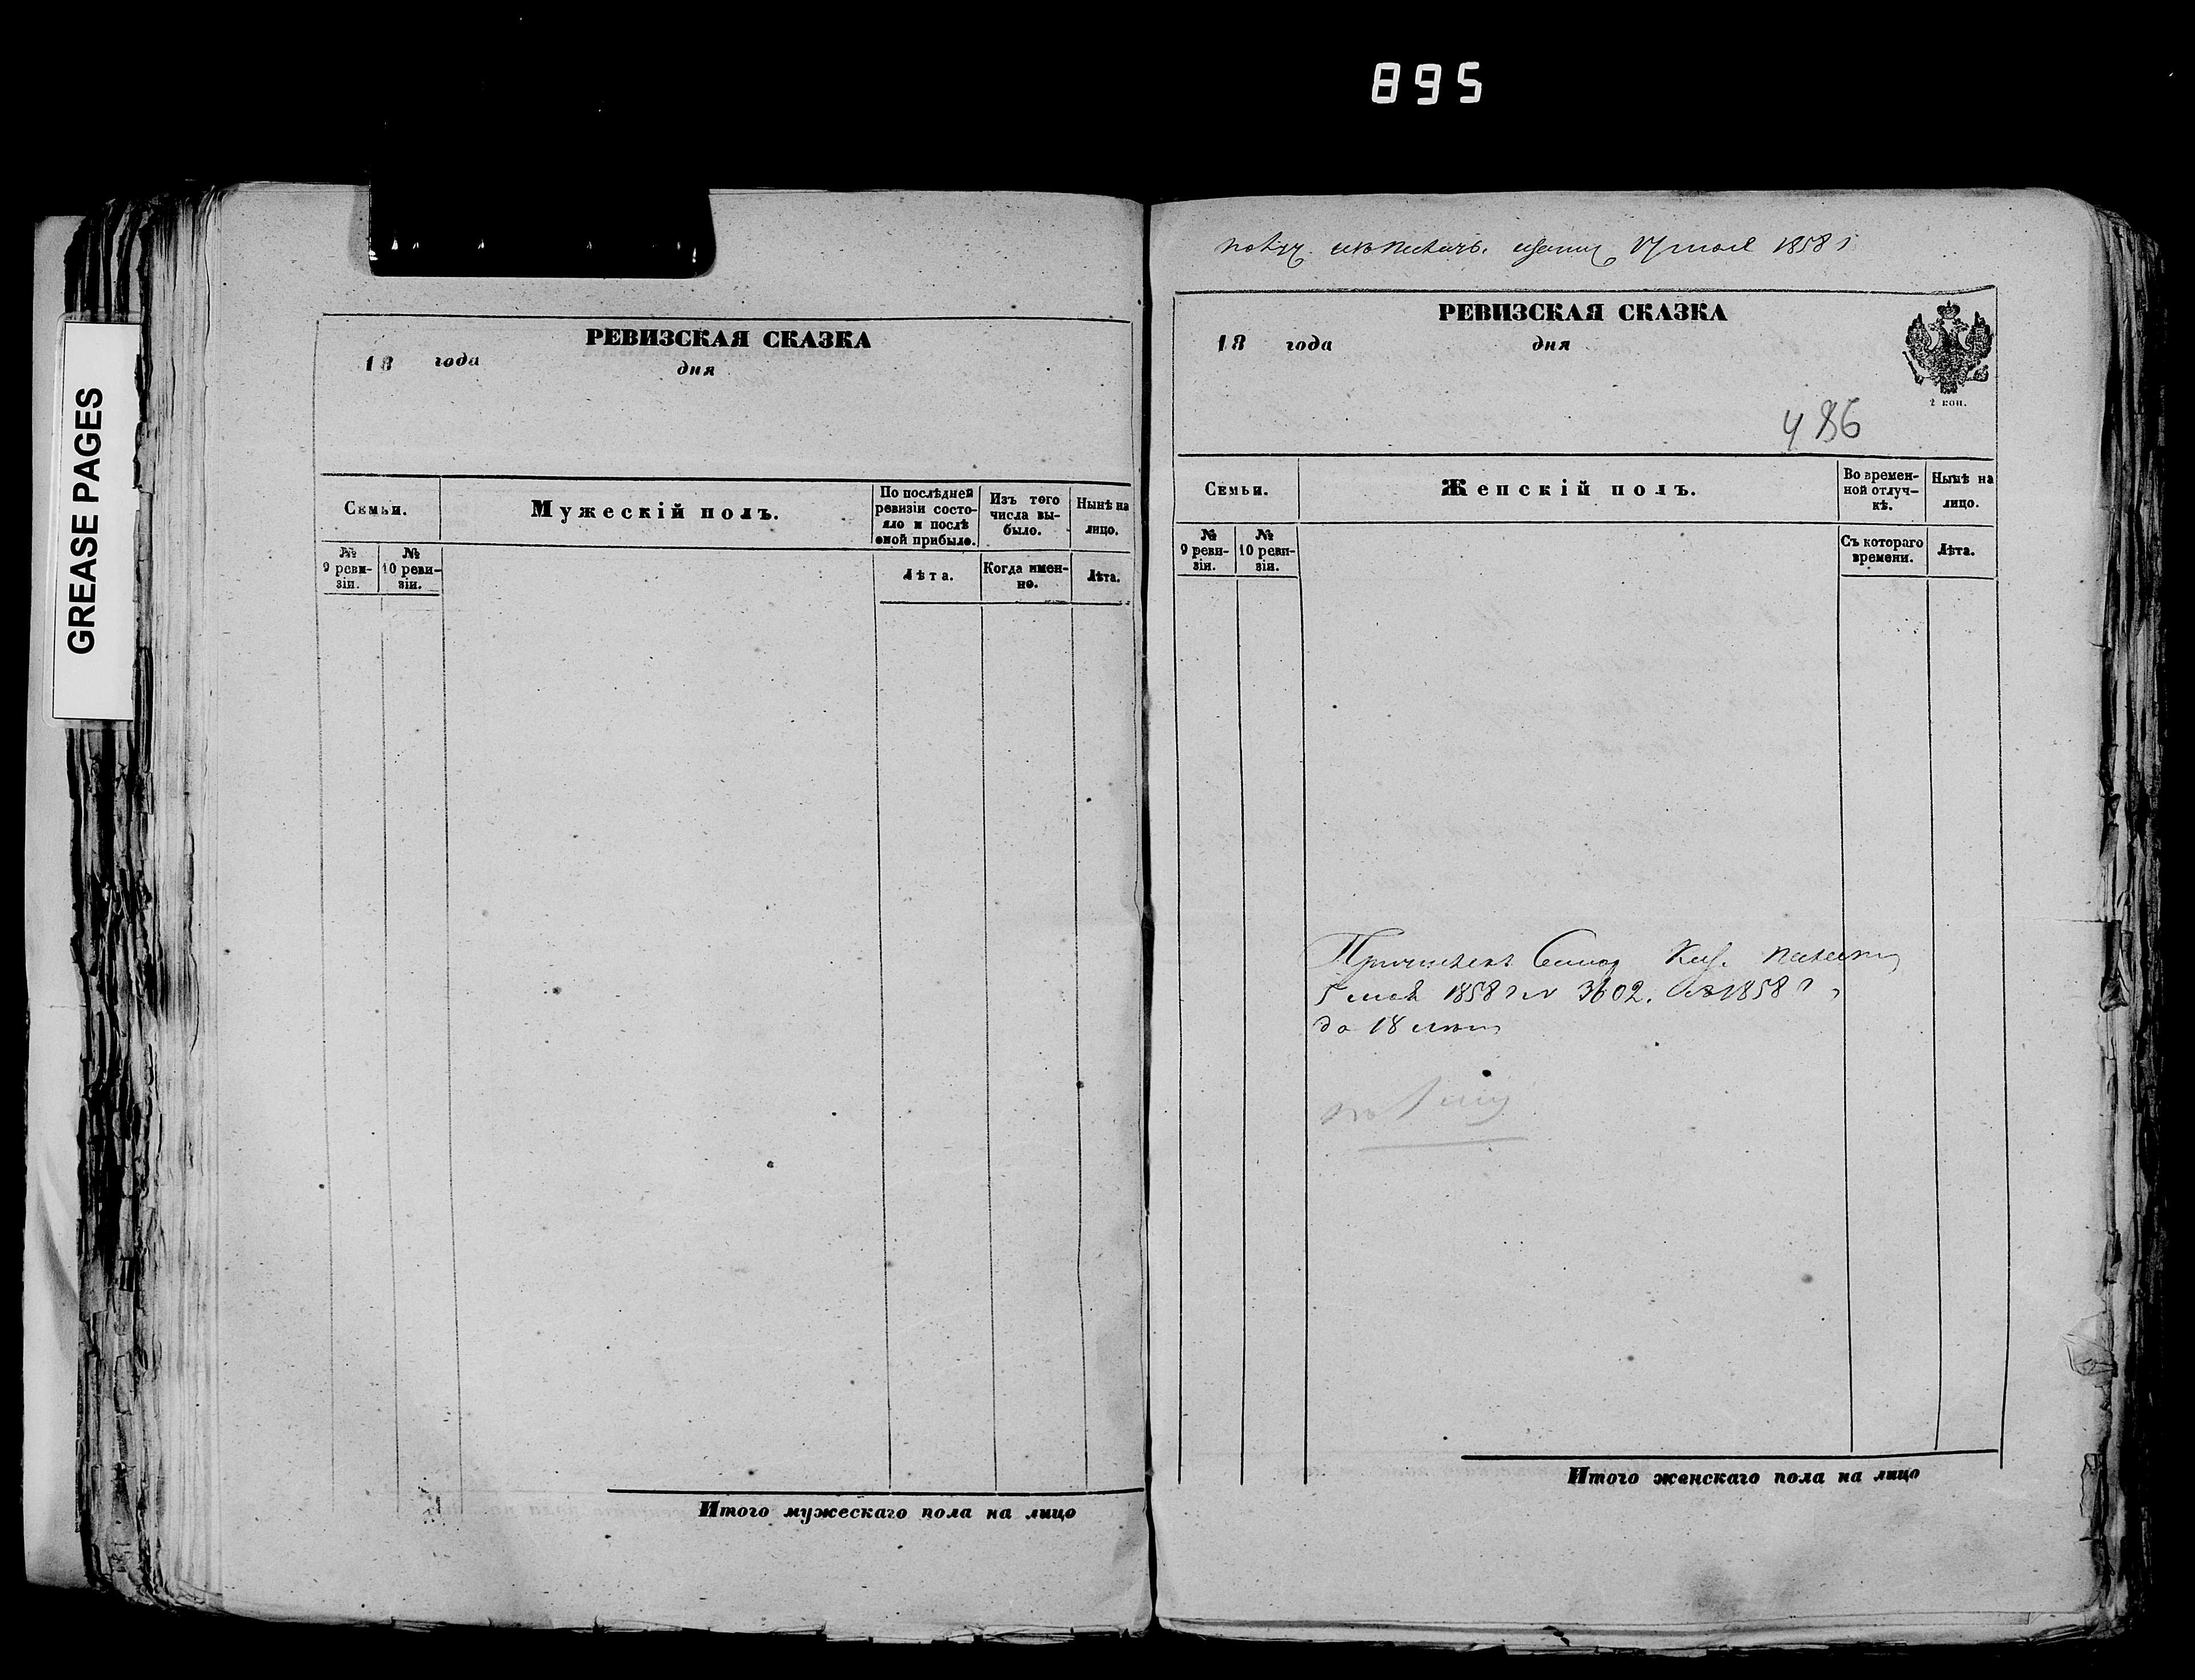 895
GREASE PAGES
РЕВИЗСКАЯ СКАЗКА
18 года дня
Семьи.
Мужескій полъ.
По послѣдней ревизіи состо-
яло и послѣ оной прибыло.
Изъ того числа вы-
было.
Нынѣ на лицо.
№ 9 реви-
зіи.
№ 10 реви-
зіи.
Лѣта.
Когда имен-
но.
Лѣта.
Итого мужескаго пола на лицо
1858
РЕВИЗСКАЯ СКАЗКА
18 года дня
2 коп.
486
Семьи.
Женскій полъ.
Во времен-
ной отлуч-
кѣ.
Нынѣ на
лицо.
№ 9 реви-
зіи.
№ 10 реви-
зіи.
Съ котораго
времени.
Лѣта.
Каз. палаты
5 мая 1858 г № 3602. 1858 г
до 18
Итого женскаго пола на лицо